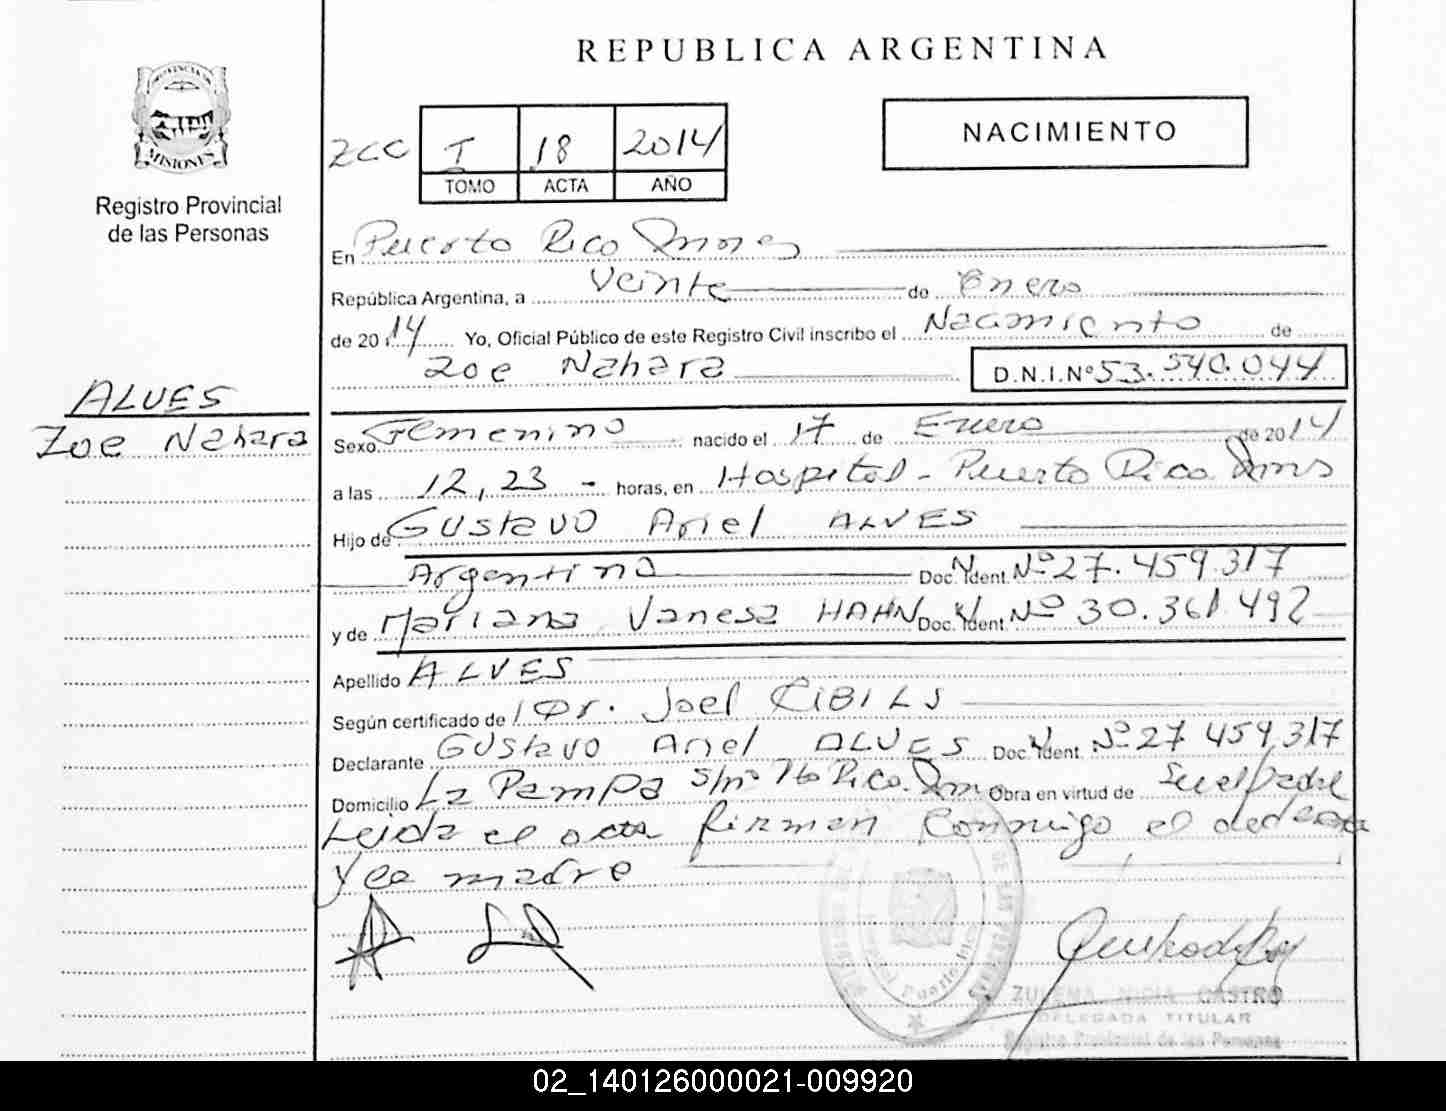 REPUBLICA ARGENTINA
PROVINCIA DE
MISIONES
Registro Provincial
de las Personas
NACIMIENTO
I 18 2014
TOMO ACTA AÑO
En Puerto Rico
República Argentina, a Veinte de Enero
de 2014 Yo, Oficial Público de este Registro Civil inscribo el Nacimiento de
Zoe Nahara D.N.I.Nº 53.540.044
ALVES
Zoe Nahara
Sexo Femenino nacido el 17 de Enero de 2014
a las 12,23 - horas, en Hospital - Puerto Rico
Hijo de Gustavo Ariel ALVES
Argentino Doc. Ident. Nº 27.459.317
y de Mariana Vanesa HAHN Doc. Ident. Nº 30.361.492
Apellido ALVES
Según certificado de Dr. Joel CIBILS
Declarante Gustavo Ariel ALVES Doc. Ident. Nº 27.459.317
Domicilio La Pampa s/nº Pto Rico. Obra en virtud de
Leida el acta firman conmigo el
y la madre
ZULEMA NIDIA CASTRO
DELEGADA TITULAR
Registro Provincial de las Personas
02_140126000021-009920